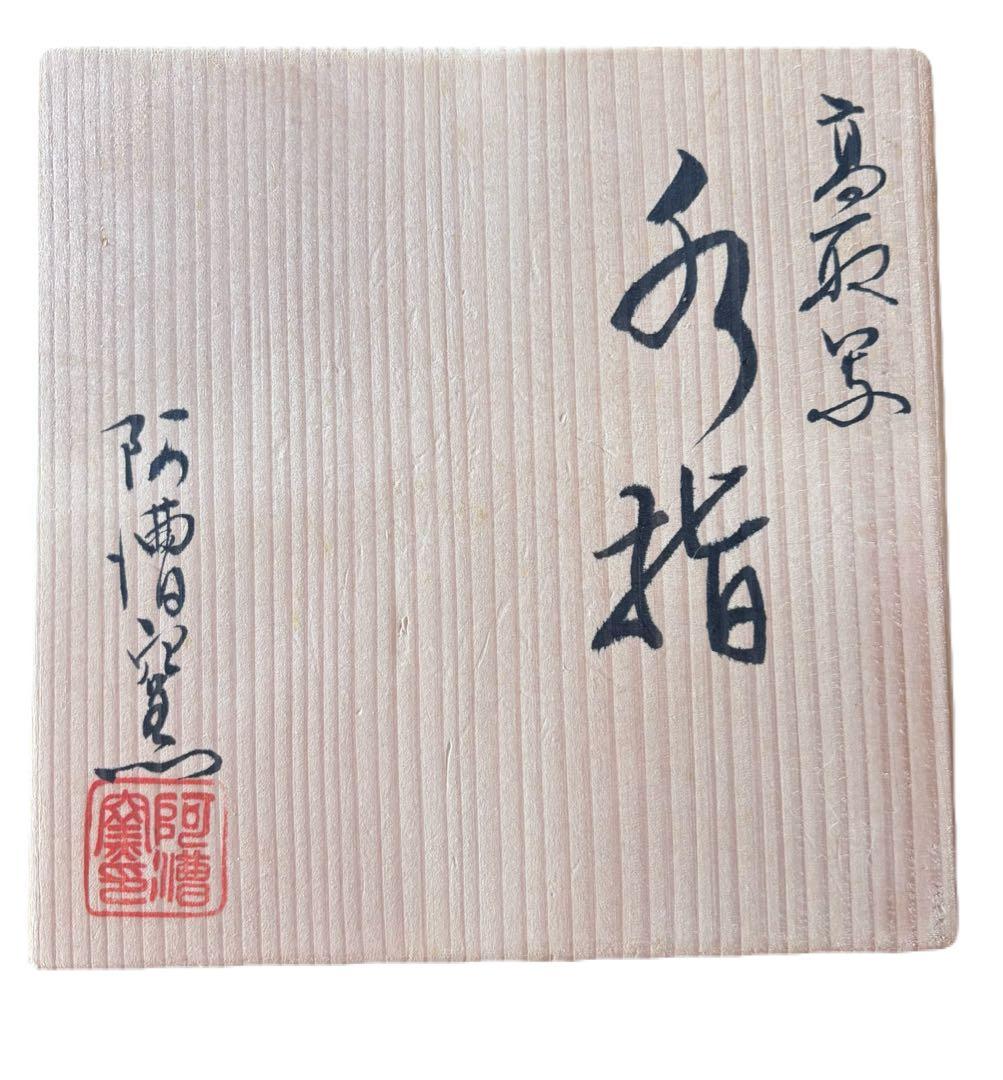 高取写
水指
阿漕窯
阿漕
窯印